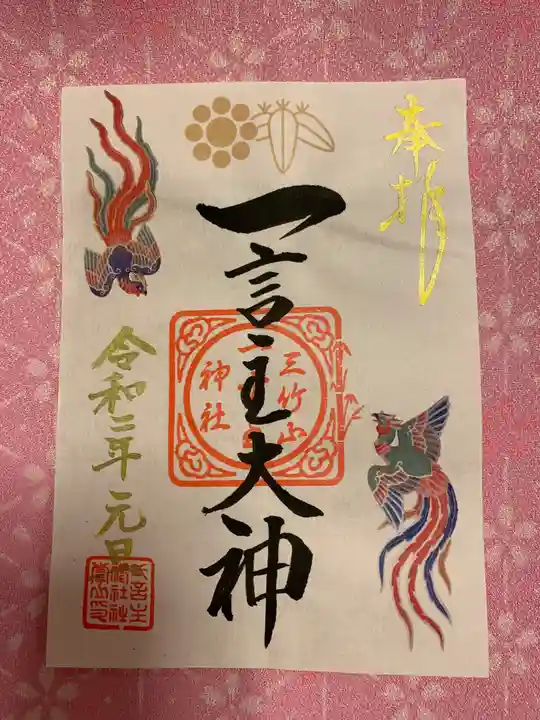 奉拝
一言主大神
三竹山
神社
令和二年元日